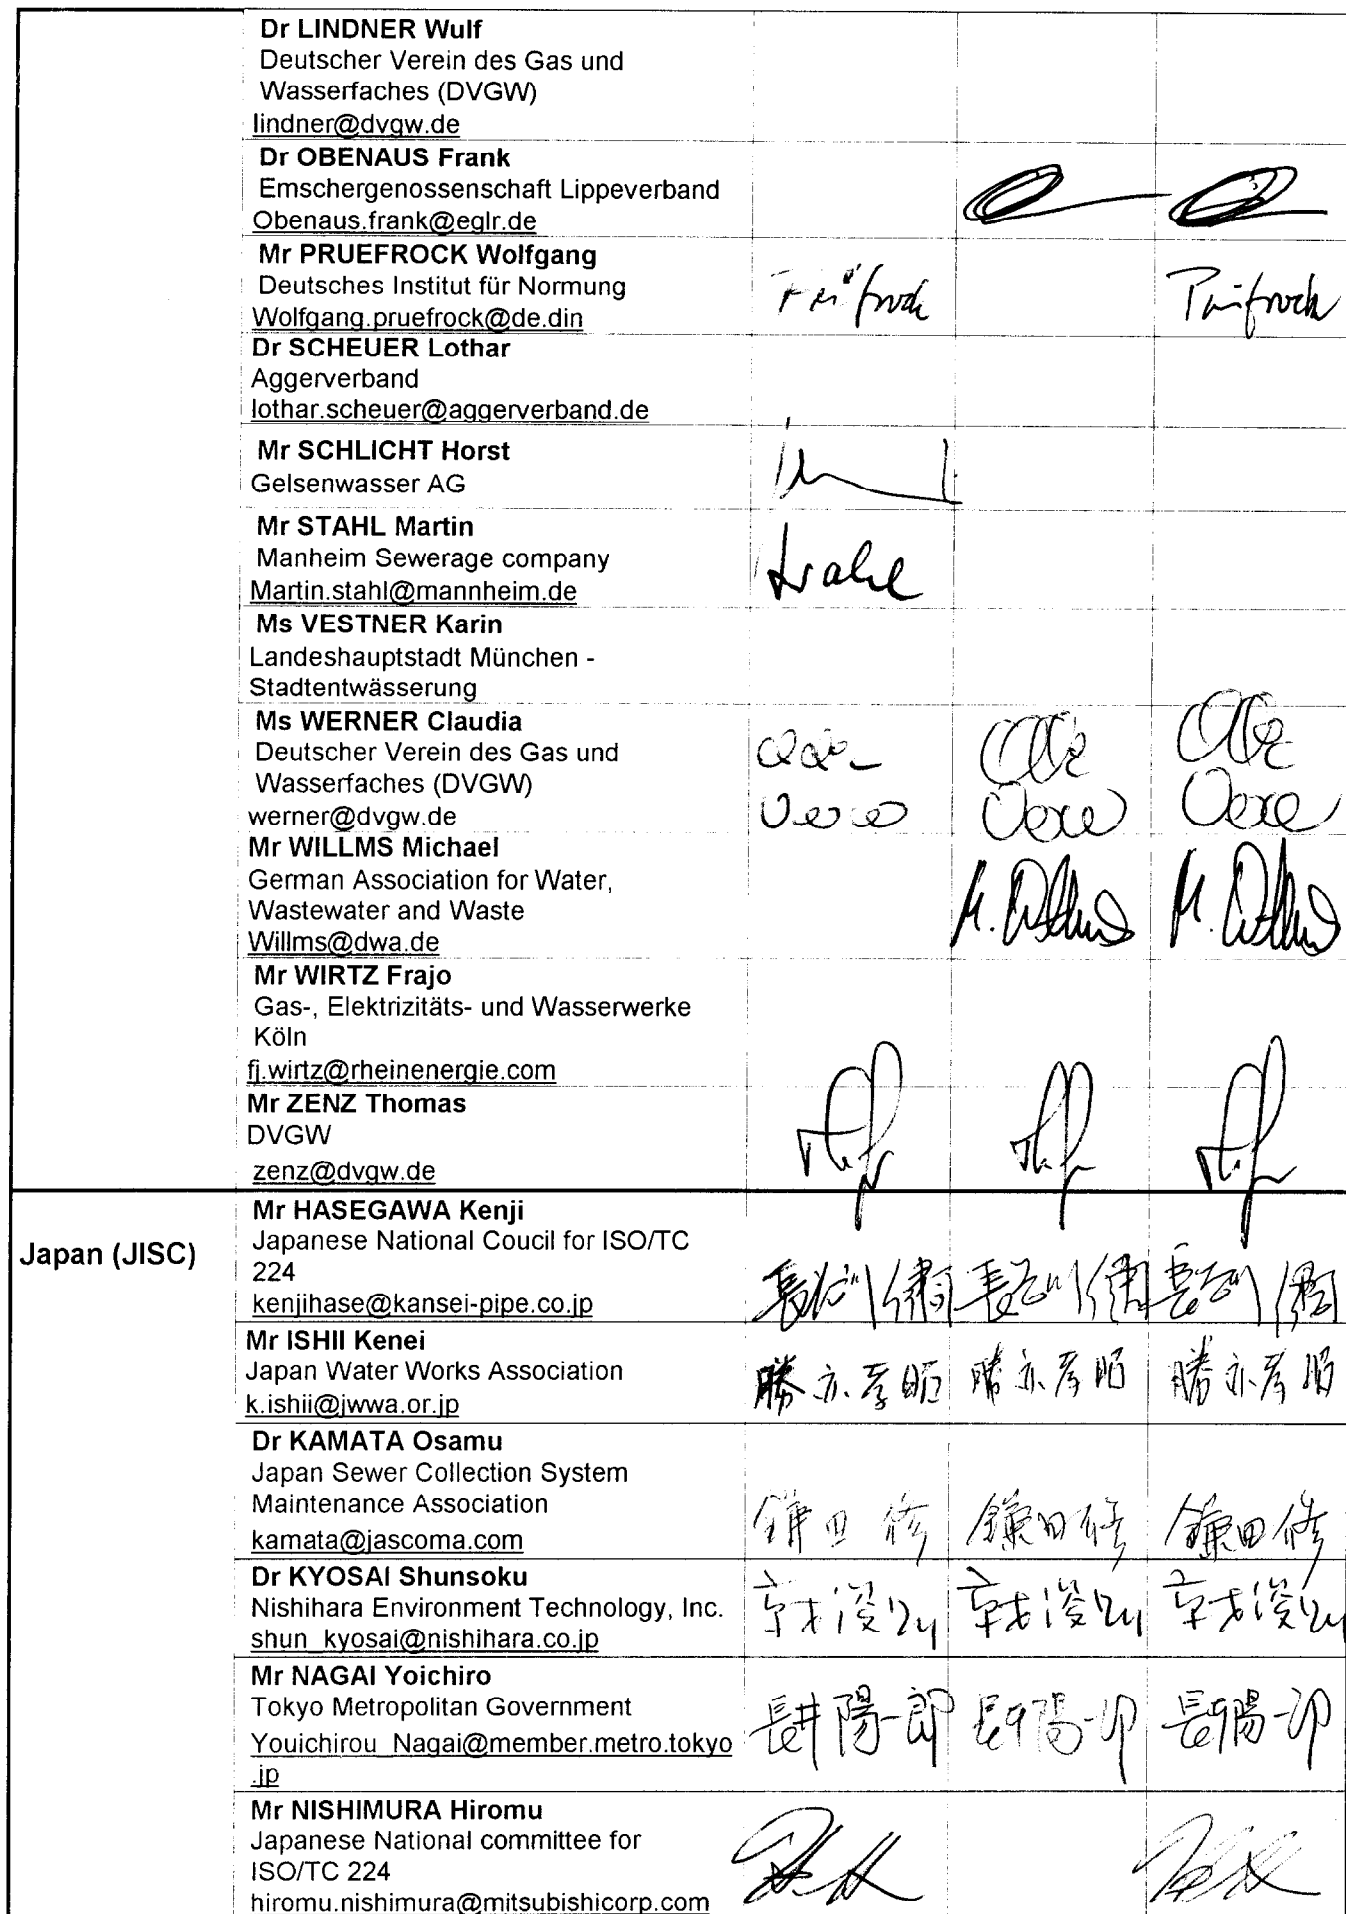 Dr LINDNER Wulf
Deutscher Verein des Gas und
Wasserfaches (DVGW)
lindner@dvgw.de
Dr OBENAUS Frank
Emschergenossenschaft Lippeverband
Obenaus.frank@eglr.de
Mr PRUEFROCK Wolfgang
Deutsches Institut für Normung
Wolfgang.pruefrock@de.din
Prüfrock Prüfrock
Dr SCHEUER Lothar
Aggerverband
lothar.scheuer@aggerverband.de
Mr SCHLICHT Horst
Gelsenwasser AG
Mr STAHL Martin
Manheim Sewerage company
Martin.stahl@mannheim.de
Stahl
Ms VESTNER Karin
Landeshauptstadt München -
Stadtentwässerung
Ms WERNER Claudia
Deutscher Verein des Gas und
Wasserfaches (DVGW)
werner@dvgw.de
Mr WILLMS Michael
German Association for Water,
Wastewater and Waste
Willms@dwa.de
M. Willms M. Willms
Mr WIRTZ Frajo
Gas-, Elektrizitäts- und Wasserwerke
Köln
fj.wirtz@rheinenergie.com
Mr ZENZ Thomas
DVGW
zenz@dvgw.de
Japan (JISC)
Mr HASEGAWA Kenji
Japanese National Coucil for ISO/TC
224
kenjihase@kansei-pipe.co.jp
Mr ISHII Kenei
Japan Water Works Association
k.ishii@jwwa.or.jp
勝亦孝明 勝亦孝明 勝亦孝明
Dr KAMATA Osamu
Japan Sewer Collection System
Maintenance Association
kamata@jascoma.com
鎌田 修 鎌田修 鎌田修
Dr KYOSAI Shunsoku
Nishihara Environment Technology, Inc.
shun_kyosai@nishihara.co.jp
Mr NAGAI Yoichiro
Tokyo Metropolitan Government
Youichirou_Nagai@member.metro.tokyo
.jp
長井陽一郎 長井陽一郎 長井陽一郎
Mr NISHIMURA Hiromu
Japanese National committee for
ISO/TC 224
hiromu.nishimura@mitsubishicorp.com